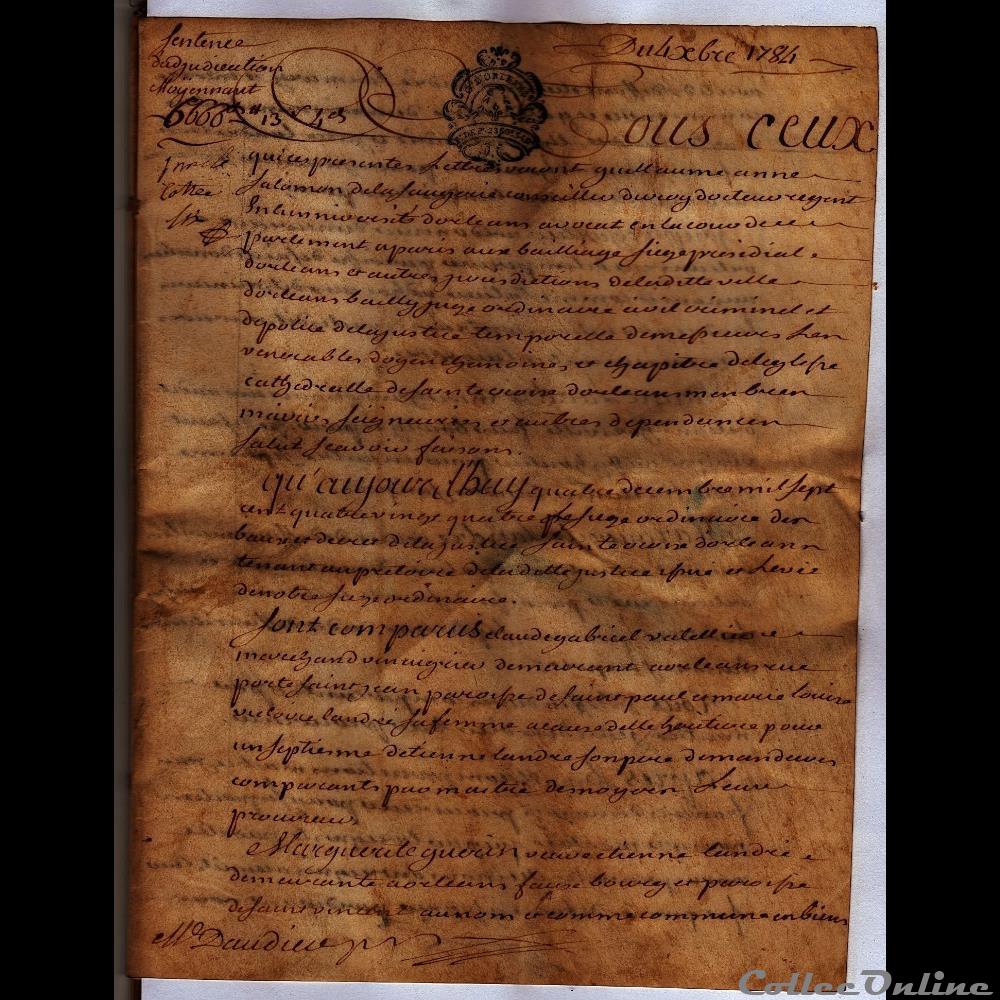 Sentence
d'adjudication
Moyennant
6666tt 13s 4d
Du 4 Xbre 1784
ous ceux
Cottee
six
qui ces presentes Lettres verront guillaume anne
salomon de la saugerie conseiller du roy docteur regent
En luniversité dorleans avocat en la cour de
parlement a paris aux bailliage siege presidial
dorleans et autres jurisdictions de laditte ville
dorleans bailly juge ordinaire civil criminel et
de police de la justice temporelle de messieurs Les
venerables doyen chanoines et chapitre de leglise
cathedralle de sainte croix dorleans membres
mairies seigneuries et autres dependances
salut scavoir faisons.
qu'aujourd'huy quatre decembre mil sept
cent quatre vingt quatre siege ordinaire des
baux et decret de la justice sainte croix dorleans
tenant au pretoire de laditte justice et Levée
de notre siege ordinaire.
sont comparus claude gabriel vatellier
marchand vinaigrier demeurant a orleans rue
porte saint jean paroisse de saint paul et marie louise
victoire landré sa femme a cause delle heritiere pour
un septieme detienne landré son pere demandeurs
comparants par maitre demoyen Leur
procureur
Marguerite guerin veuve etienne landré
demeurante a orleans faux bourg et paroisse
de saint vincent au nom et comme commune en biens
Me Daudier pr
CollecOnline